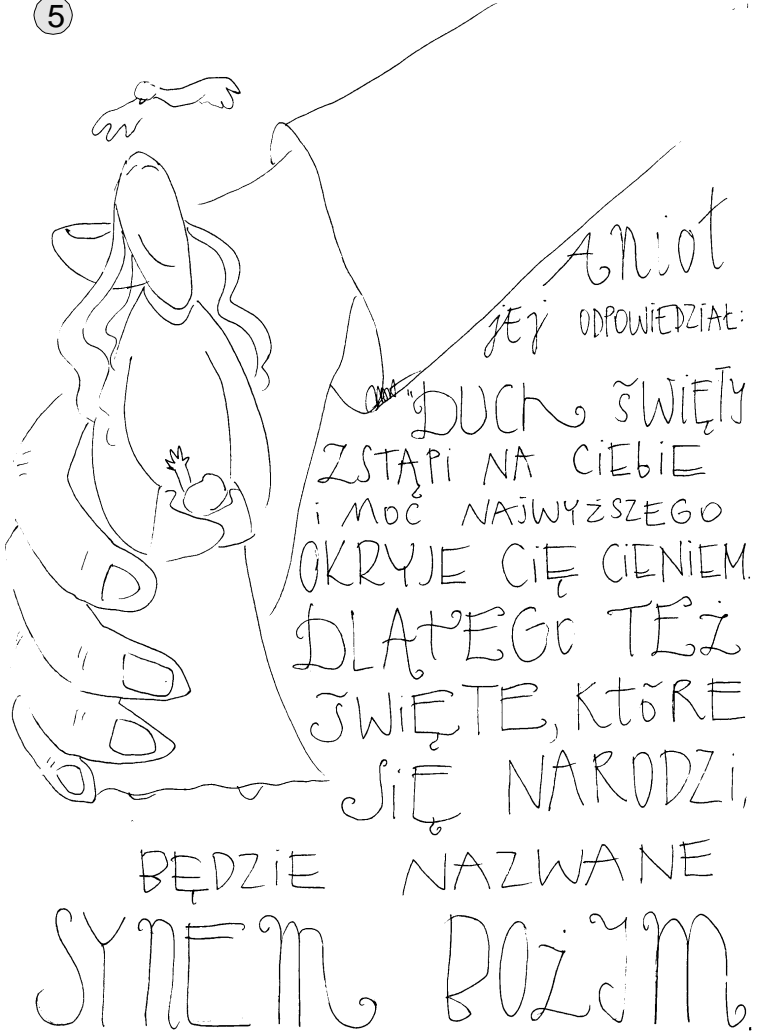 5
Anioł
jej ODPOWIEDZIAŁ:
"DUCH ŚWIĘTY
ZSTĄPI NA CIEbIE
i MOC NAJWYŻSZEGO
OKRYJE CIĘ CIENIEM.
DLATEGO TEŻ
ŚWIĘTE, KtóRE
SIĘ NARODZI,
BĘDZIE NAZWANE
SYNEM BOŻYM.